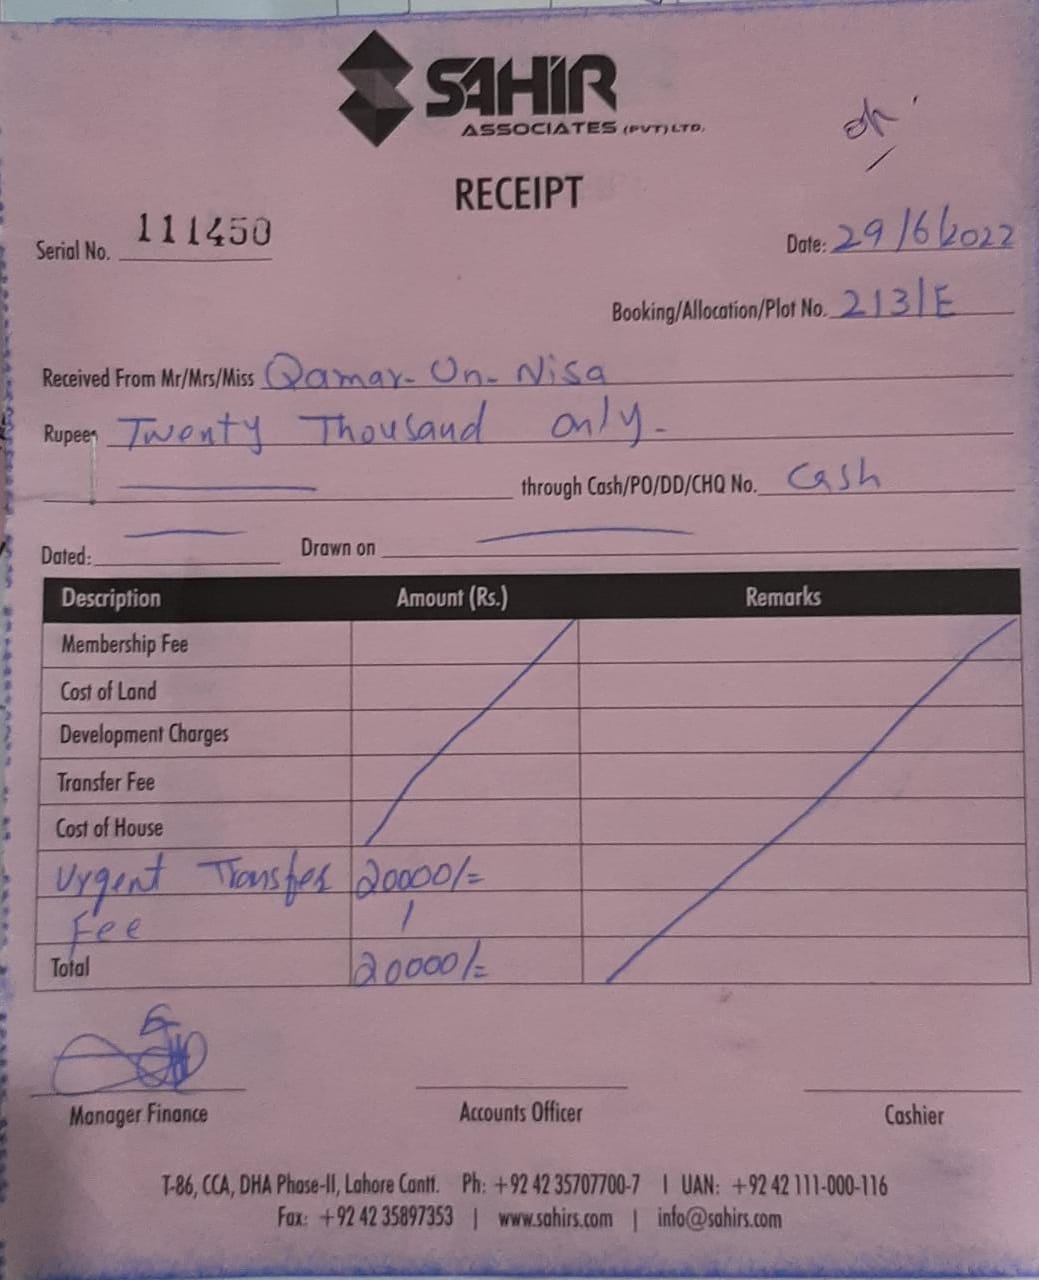 SAHIR
ASSOCIATES (PVT) LTD.
ok
RECEIPT
Serial No. 111450
Date: 29/6/2022
Booking/Allocation/Plot No. 213/E
Received From Mr/Mrs/Miss Qamar-Un-Nisa
Rupees Twenty Thousand only-
through Cash/PO/DD/CHQ No. Cash
Dated: Drawn on
Description Amount (Rs.) Remarks
Membership Fee
Cost of Land
Development Charges
Transfer Fee
Cost of House
Urgent Transfer 20000/=
Fee
Total 20000/=
Manager Finance Accounts Officer Cashier
T-86, CCA, DHA Phase-II, Lahore Cantt. Ph: +92 42 35707700-7 | UAN: +92 42 111-000-116
Fax: +92 42 35897353 | www.sahirs.com | info@sahirs.com